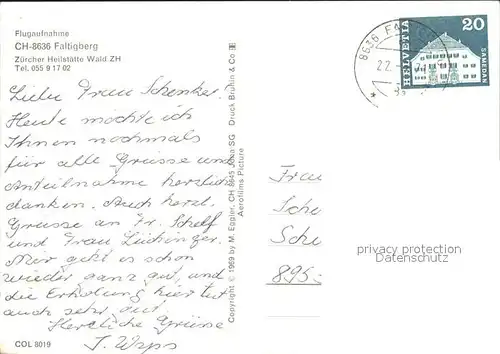 Flugaufnahme
CH-8636 Faltigberg
Zürcher Heilstätte Wald ZH
Tel. 055 9 17 02
Liebe Frau Schenkel.
Heute möchte ich
Ihnen nochmals
für alle Grüsse und
Anteilnahme herzlich
danken. Auch herzl.
Grüsse an Fr. Schelf
und Frau Lüchinger.
Mir geht es schon
wieder ganz gut, und
die Erholung hier tut
auch sehr gut
Herzliche Grüsse
COL 8019
Copyright © 1969 by M. Eggler, CH 8645 Jona SG Druck Brühin & Co
Aerofilms Picture
8636
22.
HELVETIA
20
SAMEDAN
Frau
Sche
Sch
895
privacy protection
Datenschutz